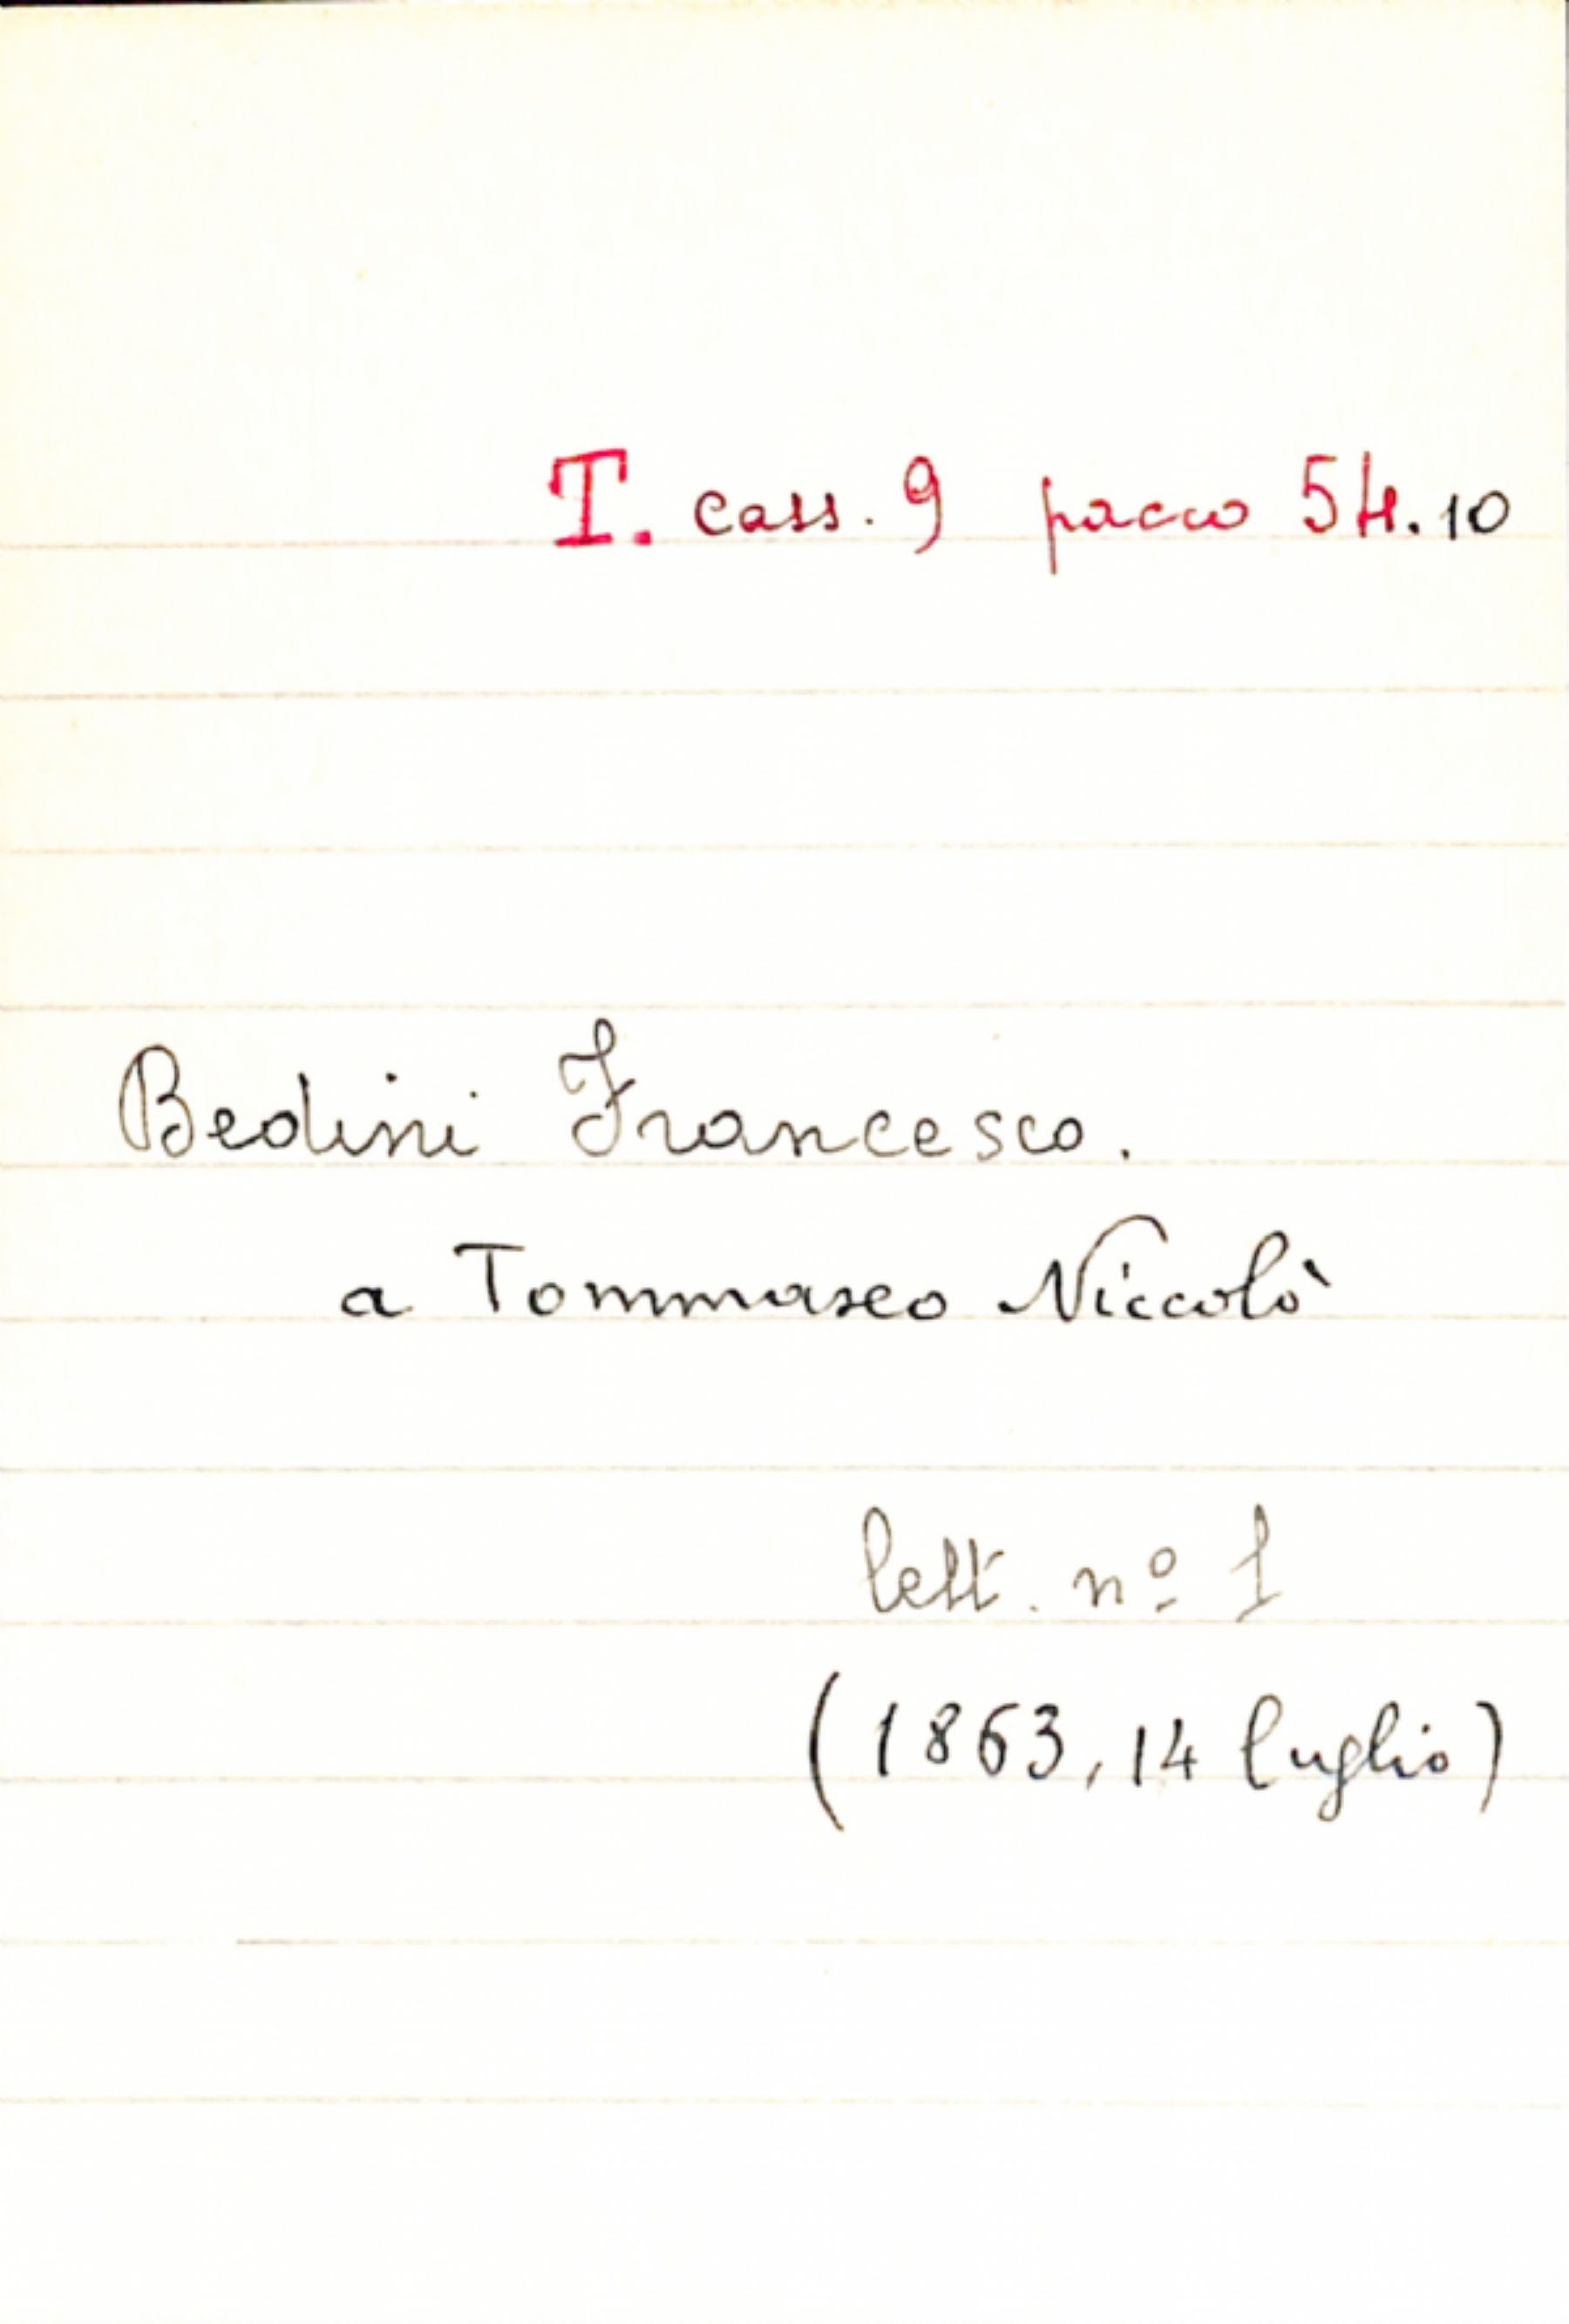 T. cass. 9 pacco 54.10
Bedini Francesco.
a Tommaseo Niccolò
lett. nº 1
(1863, 14 luglio)